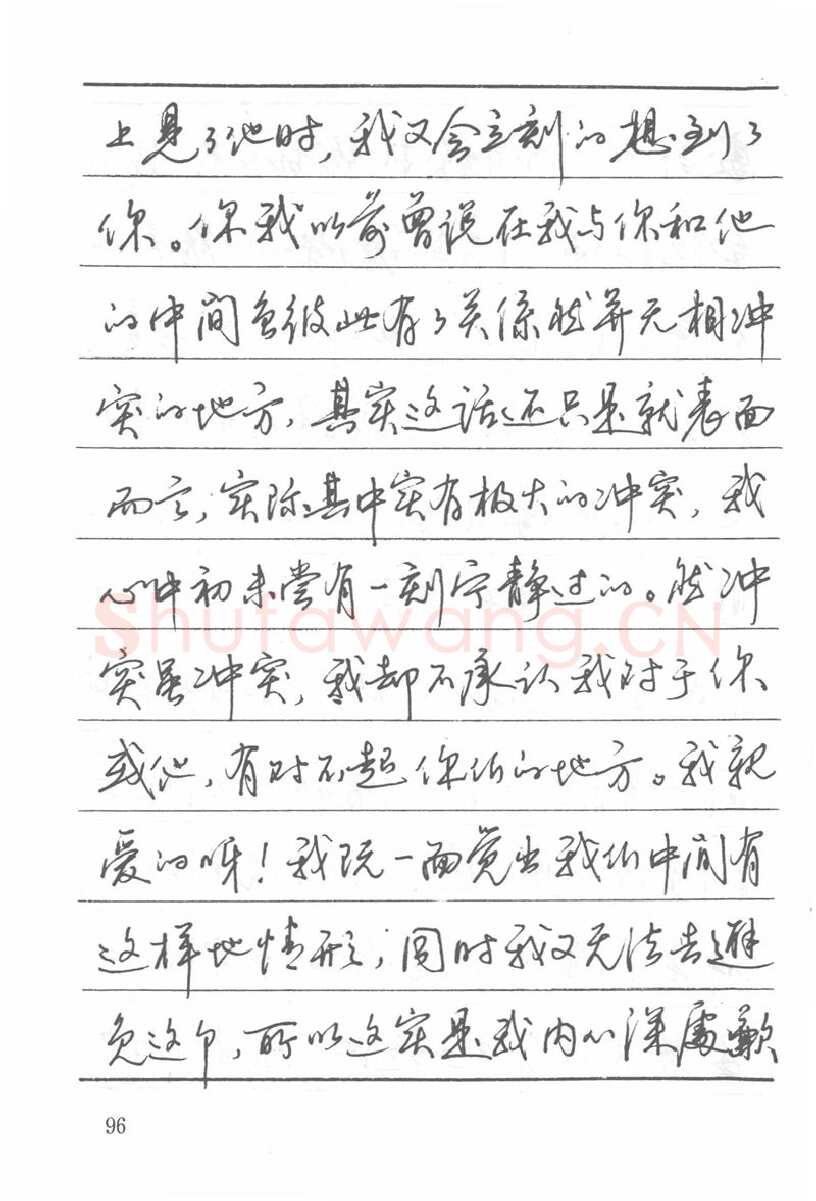 上见了他时，我又会立刻的想到了
你。你我以前曾说在我与你和他
的中间虽彼此有了关系然并无相冲
突的地方，其实这话还只是就表面
而言，实际其中实有极大的冲突，我
心中初未尝有一刻宁静过的。然冲
突虽冲突，我却不承认我对于你
或他，有对不起你们的地方。我亲
爱的呀！我既一面觉出我们中间有
这样地情形，同时我又无法去避
免这个，所以这实是我内心深處歉
Shufawang.CN
96